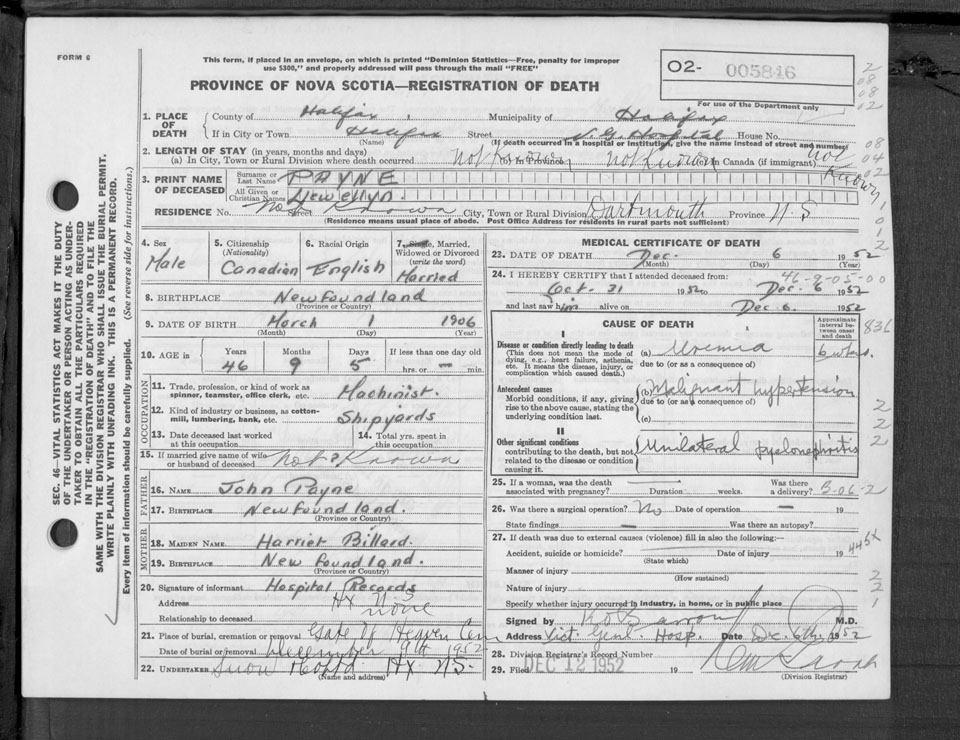 FORM 6
This form, if placed in an envelope, on which is printed "Dominion Statistics—Free, penalty for improper
use $300," and properly addressed will pass through the mail "FREE"
PROVINCE OF NOVA SCOTIA—REGISTRATION OF DEATH
O2- 005846
For use of the Department only
1. PLACE OF DEATH
County of Halifax Municipality of Halifax
If in City or Town Halifax Street V. G. Hospital House No.
(Name) (If death occurred in a hospital or institution, give the name instead of street and number)
2. LENGTH OF STAY (in years, months and days)
(a) In City, Town or Rural Division where death occurred not known in Province not Known in Canada (if immigrant) not Known
3. PRINT NAME OF DECEASED
Surname or Last Name PAYNE
All Given or Christian Names Llewellyn
RESIDENCE No. Not Street Known City, Town or Rural Division Dartmouth Province N. S
(Residence means usual place of abode. Post Office Address for residents in rural parts not sufficient)
4. Sex
Male
5. Citizenship
(Nationality)
Canadian
6. Racial Origin
English
7. Single, Married, Widowed or Divorced
(write the word)
Married
8. BIRTHPLACE Newfoundland
(Province or Country)
9. DATE OF BIRTH March 1 1906
(Month) (Day) (Year)
10. AGE in
Years Months Days If less than one day old
46 9 5 hrs. or min.
OCCUPATION
11. Trade, profession, or kind of work as
spinner, teamster, office clerk, etc. Machinist.
12. Kind of industry or business, as cotton-
mill, lumbering, bank, etc. Shipyards
13. Date deceased last worked
at this occupation
14. Total yrs. spent in
this occupation
15. If married give name of wife
or husband of deceased Not Known
FATHER
16. NAME John Payne
17. BIRTHPLACE Newfoundland.
(Province or Country)
MOTHER
18. MAIDEN NAME Harriet Billard.
19. BIRTHPLACE Newfoundland.
(Province or Country)
20. Signature of informant Hospital Records
Address Hx
Relationship to deceased None
21. Place of burial, cremation or removal Gate Of Heaven Cem
Date of burial or removal December 9th 1952
22. UNDERTAKER Snow Hx N.S.
(Name and address)
MEDICAL CERTIFICATE OF DEATH
23. DATE OF DEATH Dec. 6 1952
(Month) (Day) (Year)
24. I HEREBY CERTIFY that I attended deceased from: 46-9-05-00
Oct. 31 1952 to Dec. 6 1952
and last saw him alive on Dec 6. 1952
CAUSE OF DEATH
Approximate interval between onset and death
I
Disease or condition directly leading to death
(This does not mean the mode of
dying, e.g., heart failure, asthenia,
etc. It means the disease, injury, or
complication which caused death.)
(a) Uremia 6 wks.
due to (or as a consequence of)
Antecedent causes
Morbid conditions, if any, giving
rise to the above cause, stating the
underlying condition last.
(b) Malignant hypertension
due to (or as a consequence of)
(c)
II
Other significant conditions
contributing to the death, but not
related to the disease or condition
causing it.
Unilateral pyelonephritis
25. If a woman, was the death
associated with pregnancy? Duration weeks. Was there
a delivery? 3-06-2
26. Was there a surgical operation? No Date of operation — 19
State findings — Was there an autopsy?
27. If death was due to external causes (violence) fill in also the following:—
Accident, suicide or homicide? Date of injury 19
(State which)
445X
Manner of injury
(How sustained)
Nature of injury
Specify whether injury occurred in industry, in home, or in public place
Signed by M.D.
Address Vict. Genl. Hosp. Date Dec. 6th 1952
28. Division Registrar's Record Number
29. Filed DEC 12 1952 19
(Division Registrar)
SEC. 46—VITAL STATISTICS ACT MAKES IT THE DUTY
OF THE UNDERTAKER OR PERSON ACTING AS UNDER-
TAKER TO OBTAIN ALL THE PARTICULARS REQUIRED
IN THE "REGISTRATION OF DEATH" AND TO FILE THE
SAME WITH THE DIVISION REGISTRAR WHO SHALL ISSUE THE BURIAL PERMIT.
WRITE PLAINLY WITH UNFADING INK. THIS IS A PERMANENT RECORD.
Every item of information should be carefully supplied. (See reverse side for instructions.)
2
08
08
02
08
04
02
1
0
1
2
836
2
2
2
2
2
1